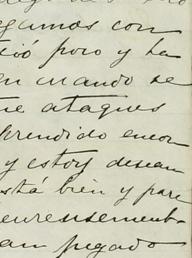 gamos con
tió poco y ha
en cuando se
ne ataques
prendido encon
y estoy desean
stá bien y pare
an pegado